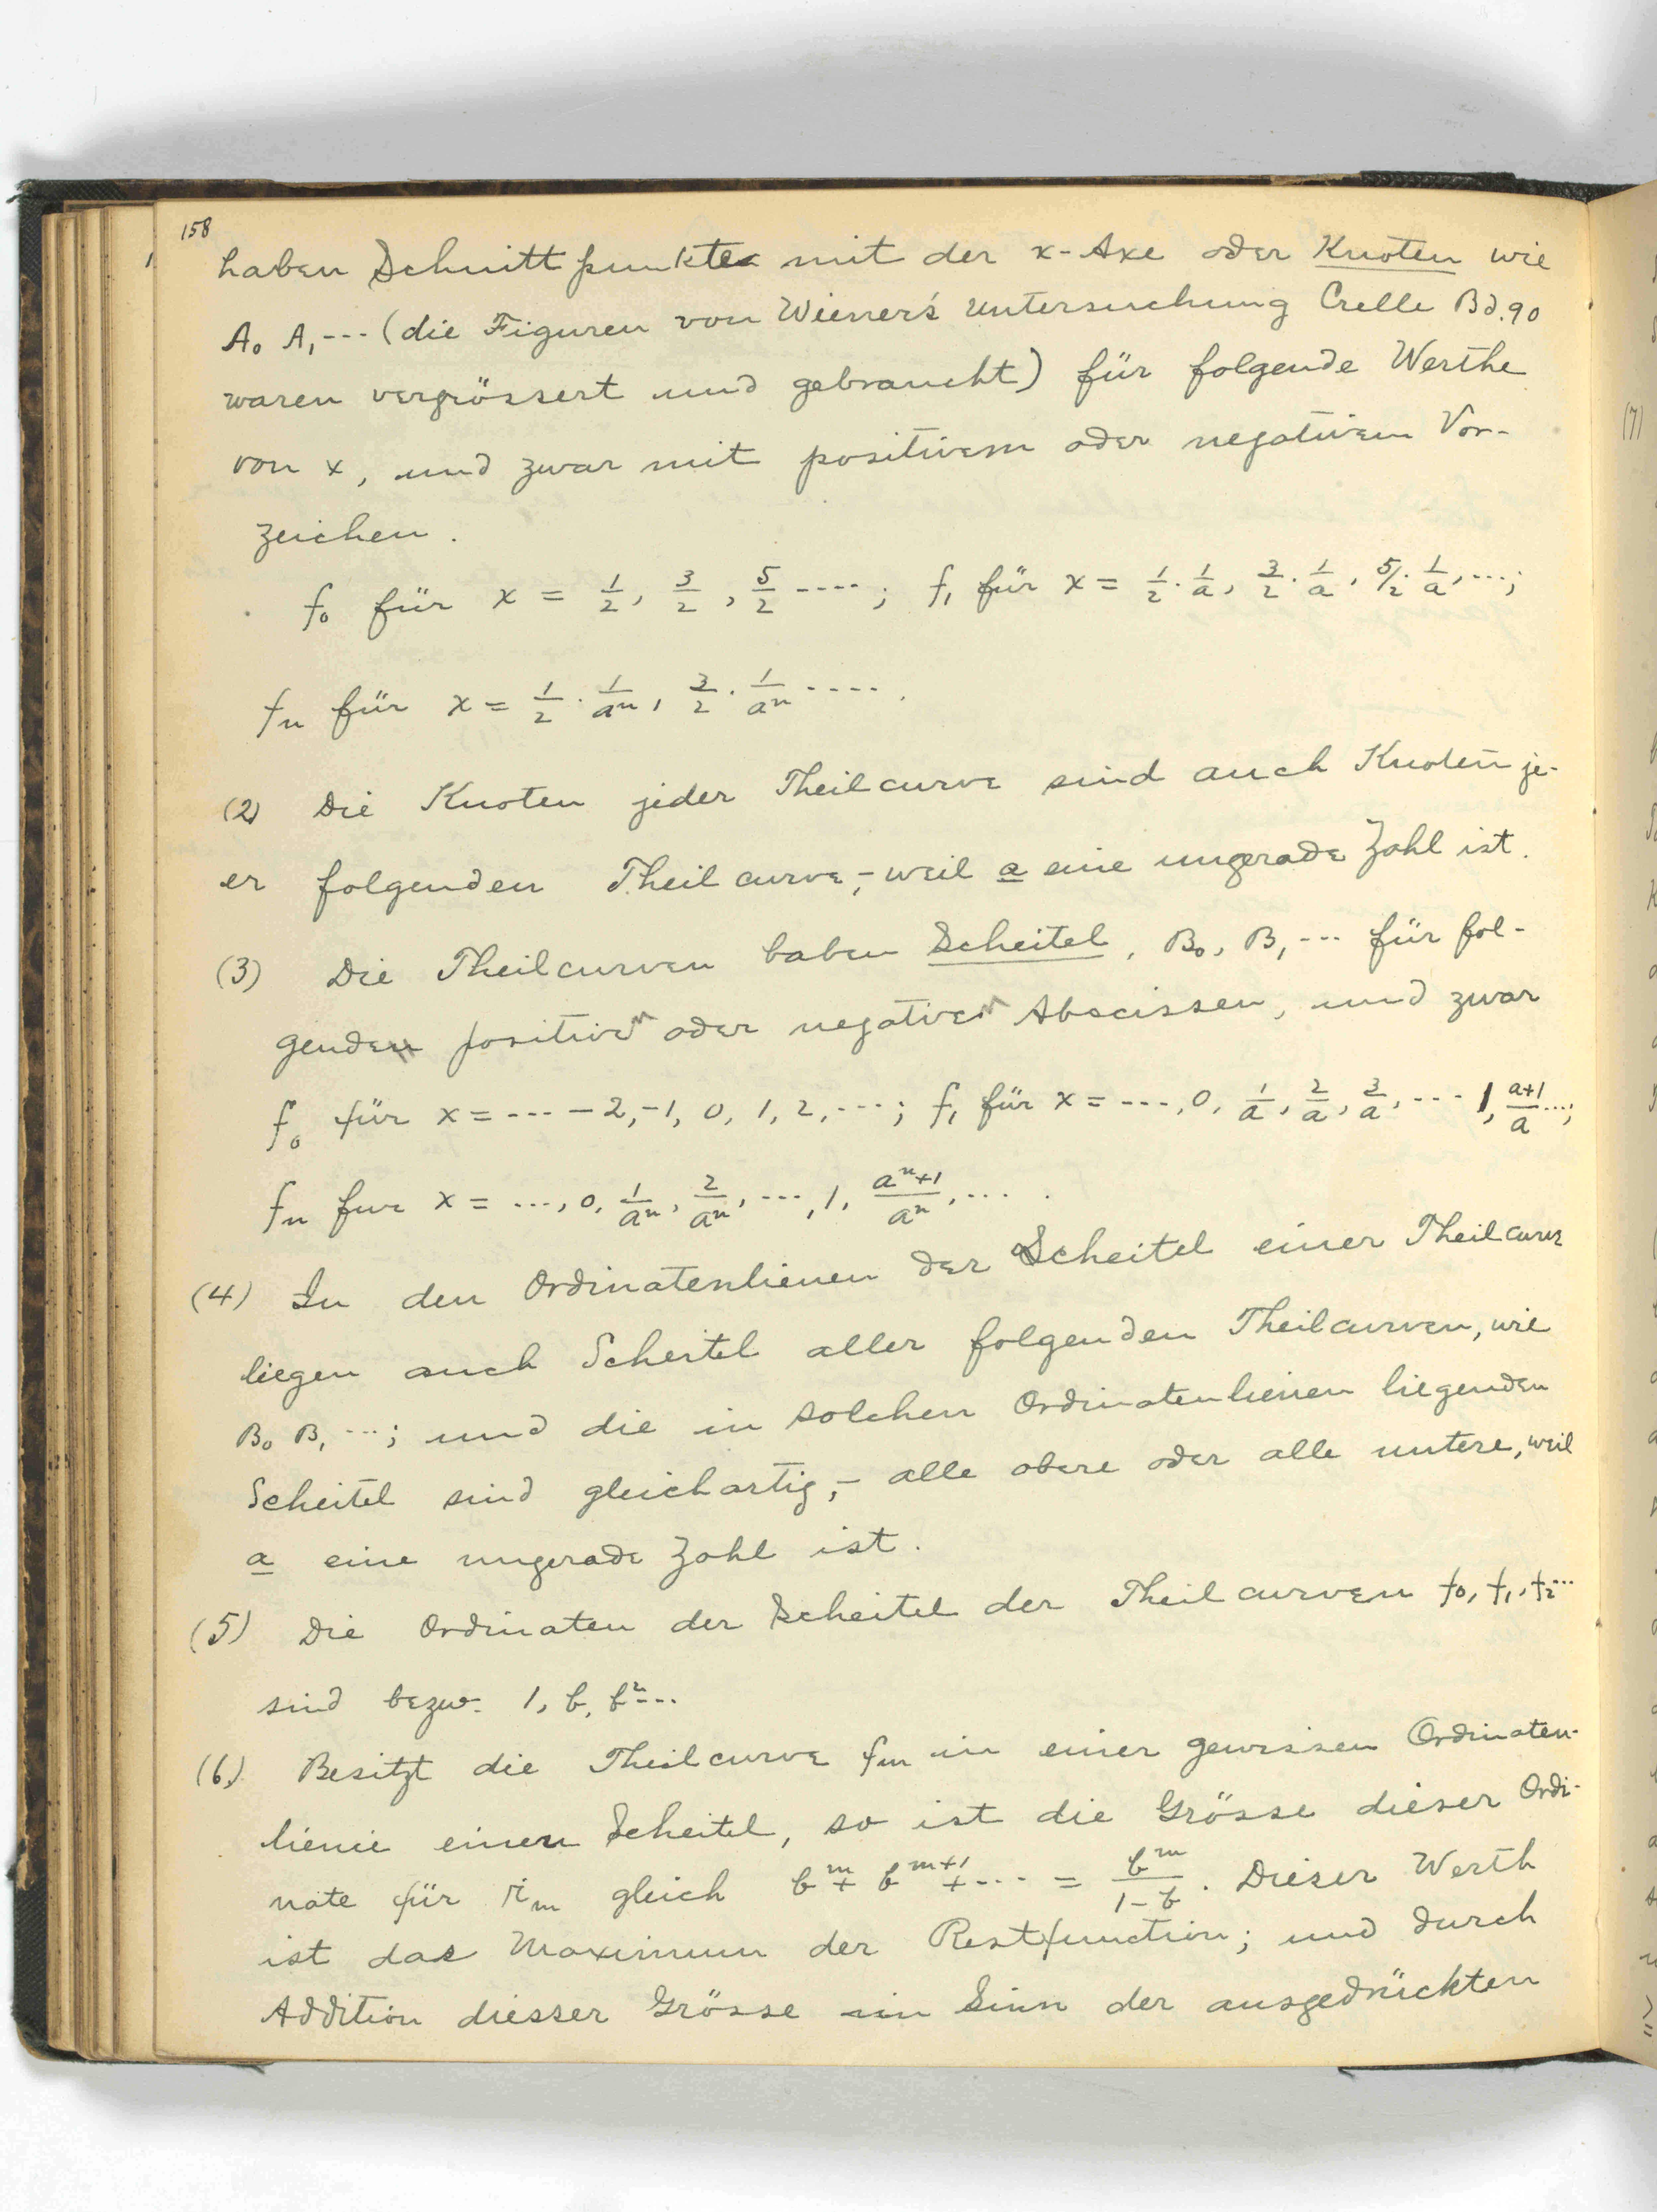 158
haben Schnittpunkte mit der x-Axe oder Knoten wie
A₀ A₁ --- (die Figuren von Wiener's Untersuchung Crelle Bd. 90
waren vergrössert und gebraucht) für folgende Werthe
von x, und zwar mit positivem oder negativem Vor-
zeichen.
f₀ für x = 1/2, 3/2, 5/2 ----; f₁ für x = 1/2 · 1/a, 3/2 · 1/a, 5/2 · 1/a, ---;
fₙ für x = 1/2 · 1/aⁿ, 3/2 · 1/aⁿ ----.
(2) Die Knoten jeder Theilcurve sind auch Knoten je-
er folgenden Theilcurve,- weil a eine ungerade Zahl ist.
(3) Die Theilcurven haben Scheitel, B₀, B₁ --- für fol-
gende positive oder negative Abscissen, und zwar
f₀ für x = --- -2, -1, 0, 1, 2, ---; f₁ für x = ---, 0, 1/a, 2/a, 3/a, --- 1, (a+1)/a ---;
fₙ fur x = ---, 0, 1/aⁿ, 2/aⁿ, ---, 1, (aⁿ+1)/aⁿ, --- .
(4) In den Ordinatenlienen der Scheitel einer Theilcurve
liegen auch Scheitel aller folgenden Theilcurven, wie
B₀ B₁ ---; und die in solchen Ordinatenlienen liegenden
Scheitel sind gleichartig,- alle obere oder alle untere, weil
a eine ungerade Zahl ist.
(5) Die Ordinaten der Scheitel der Theilcurven f₀, f₁, f₂ ---
sind bezw. 1, b, b² ---
(6) Besitzt die Theilcurve fₘ in einer gewissen Ordinaten-
lienie einen Scheitel, so ist die Grösse dieser Ordi-
nate für rₘ gleich bᵐ + bᵐ⁺¹ + --- = bᵐ/(1-b). Dieser Werth
ist das Maximum der Restfunction; und durch
Addition diesser Grösse im Sinn der ausgedrückten
(7)